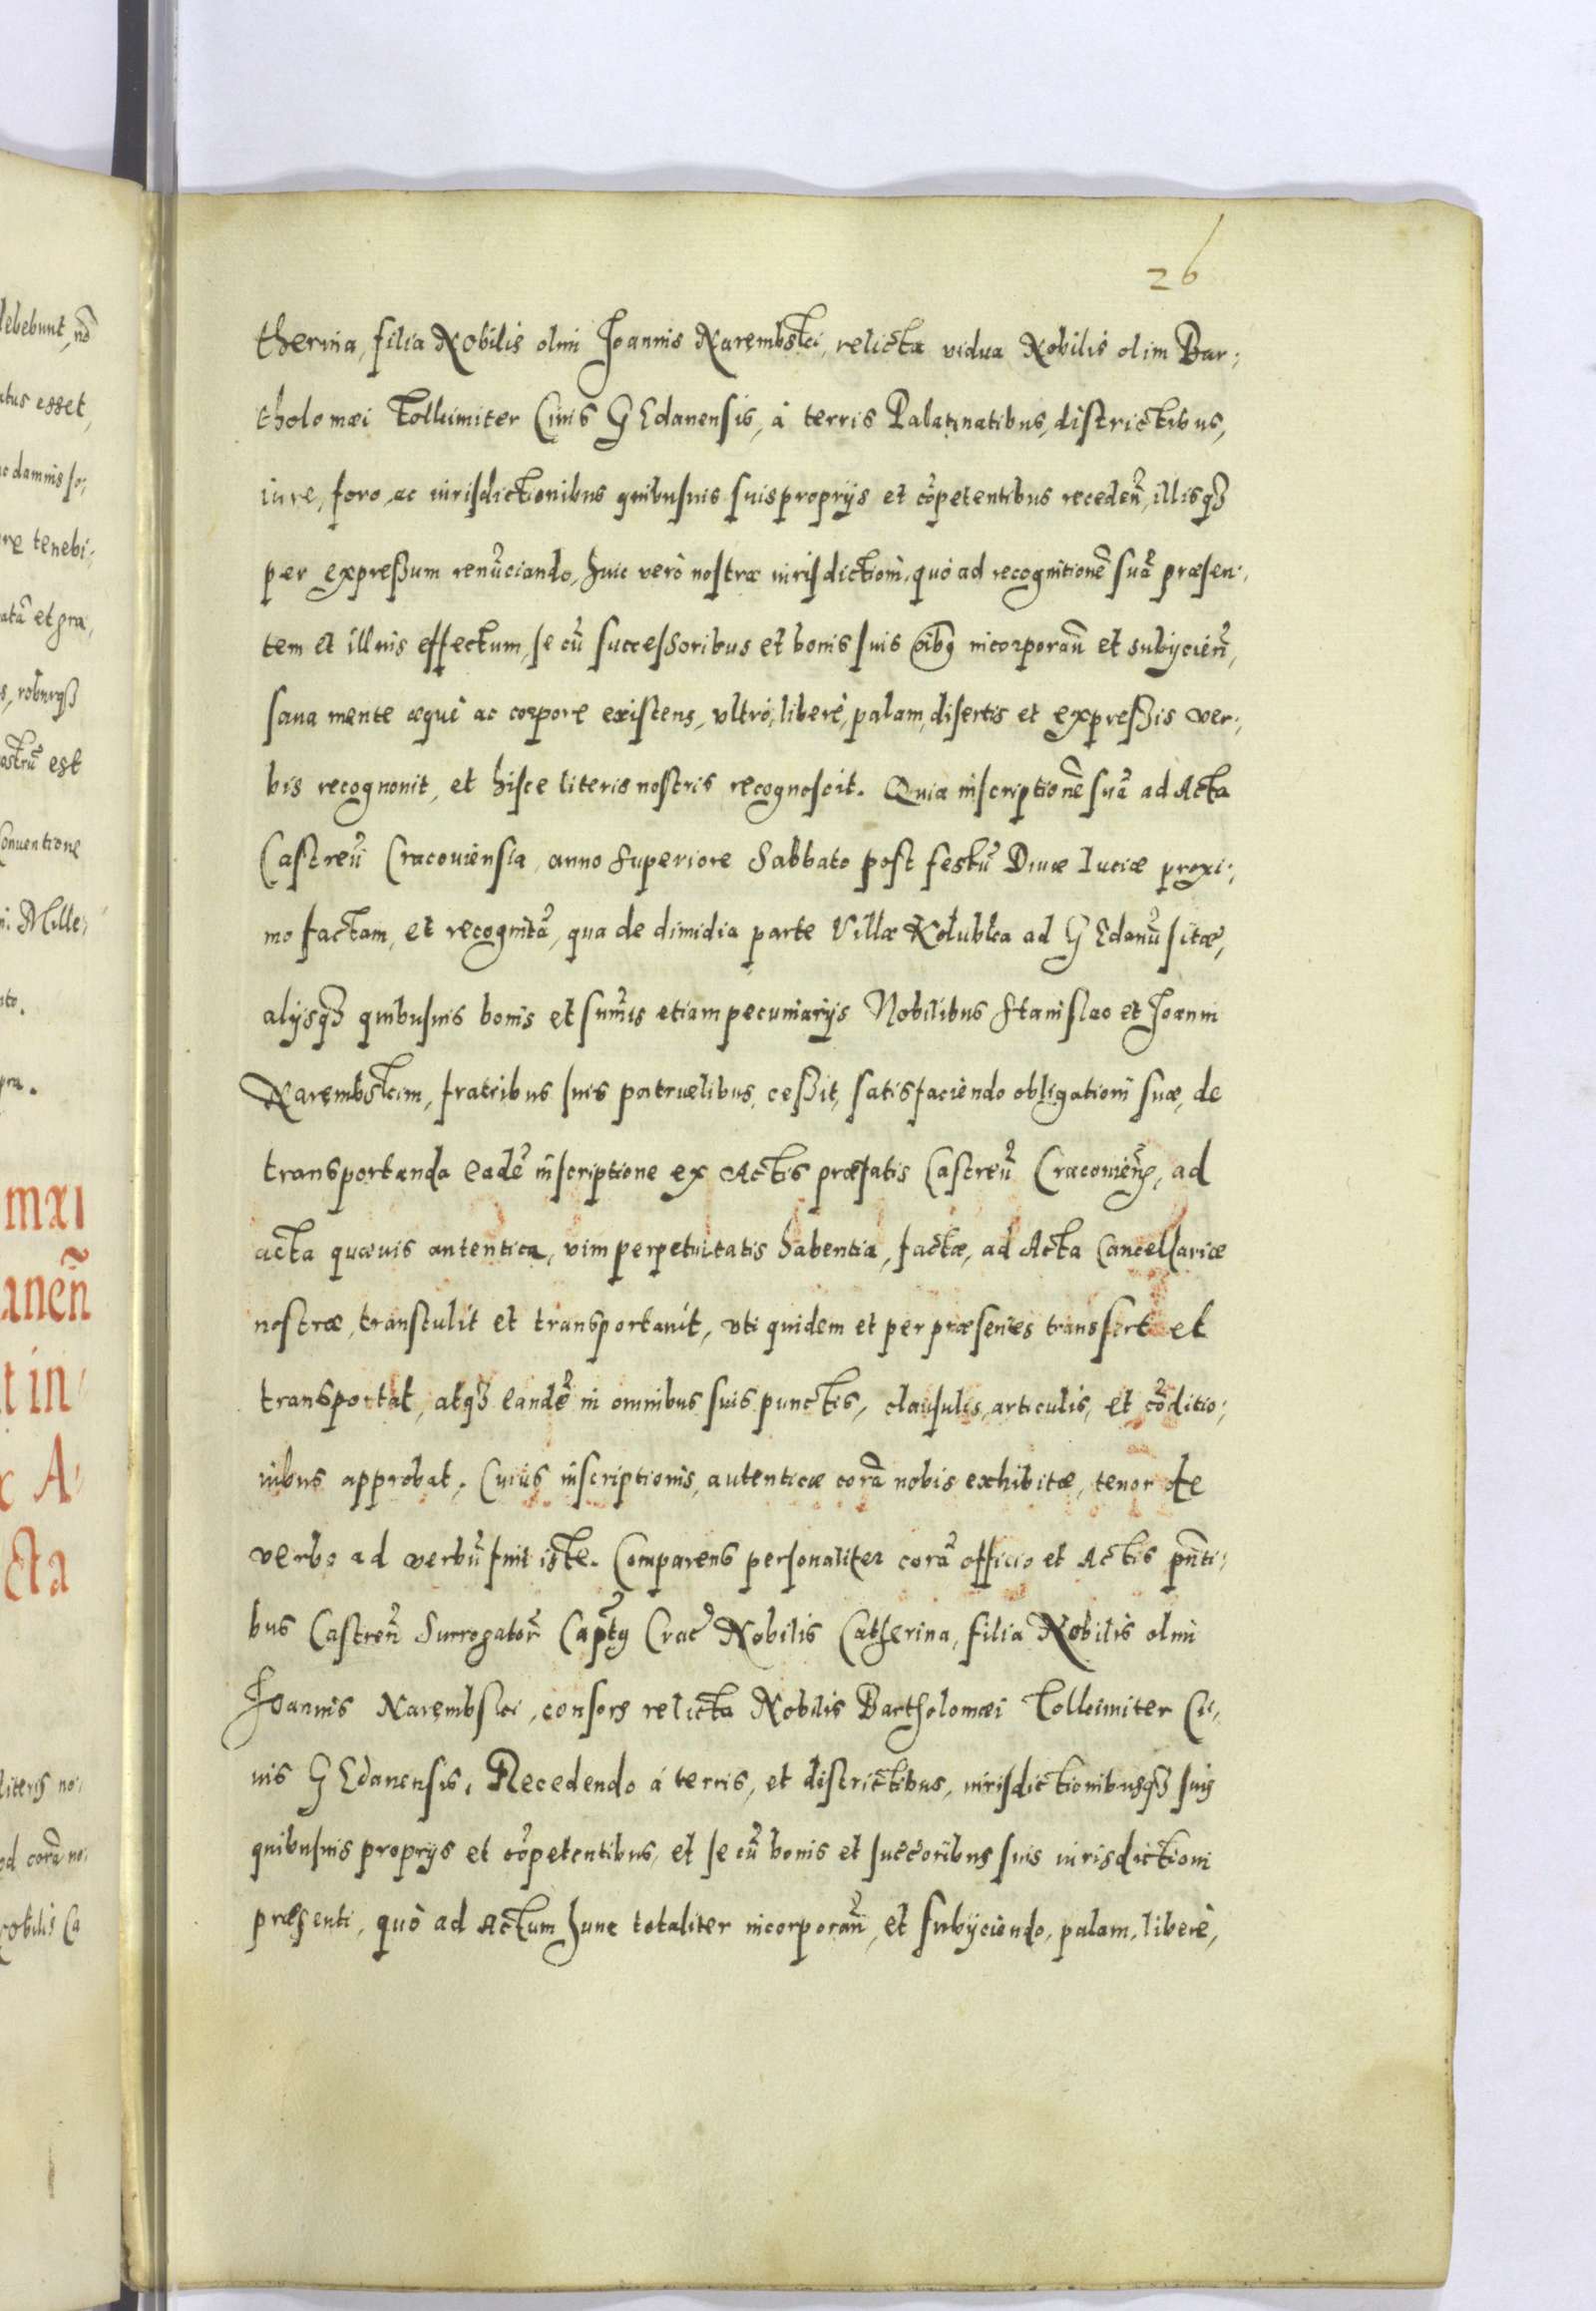 26
therina, filia Nobilis olim Joannis Narembski, relicta vidua Nobilis olim Bar:
tholomæi Tolkimiter Ciuis GEdanensis, à terris Palatinatibus, districtibus,
iure, foro, ac iurisdictionibus quibusuis suis proprijs et cõpetentibus recedeñ, illisqʒ
per expreßum renũciando, huic verò nostræ iurisdictioni, quò ad recognitionẽ suã præsen:
tem et illius effectum, se cũ successoribus et bonis suis oĩbꝰ incorporañ et subijcieñ,
sana mente æquè ac corpore existens, vltrò, liberè, palam, disertis et expreßis ver:
bis recognouit, et hisce literis nostris recognoscit. Quia inscriptionẽ suã ad Acta
Castreñ Cracouiensia, anno Superiore Sabbato post festũ Diuæ Luciæ proxi:
mo factam, et recognitã, qua de dimidia parte Villæ Kolubka ad GEdanũ sitæ,
alijsqʒ quibusuis bonis et sum̃is etiam pecuniarijs Nobilibus Stanislao et Joanni
Narembskim, fratribus suis patruelibus, ceßit, satisfaciendo obligationi suæ, de
transportanda eadẽ inscriptione ex Actis præfatis Castreñ Cracouieñ, ad
acta quæuis autentica, vim perpetuitatis habentia, factæ, ad Acta Cancellariæ
nostræ, transtulit et transportauit, vti quidem et per præsentes transfert et
transportat, atqʒ eandẽ in omnibus suis punctis, clausulis, articulis, et cõditio:
nibus approbat. Cuius inscriptionis, autenticæ corã nobis exhibitæ, tenor de
verbo ad verbũ fuit iste. Comparens personaliter corã officio et Actis pñti:
bus Castreñ Surrogatoř Capťꝰ Crac̃ Nobilis Catherina, filia Nobilis olim
Joannis Narembski, consors relicta Nobilis Bartholomæi Tolkimiter Ci:
uis GEdanensis. Recedendo á terris, et districtibus, iurisdictionibusqʒ suis
quibusuis proprijs et cõpetentibus, et se cũ bonis et succ̃oribus suis iurisdictioni
præsenti, quò ad Actum hunc totaliter incorporañ, et subijciendo, palam, liberè,